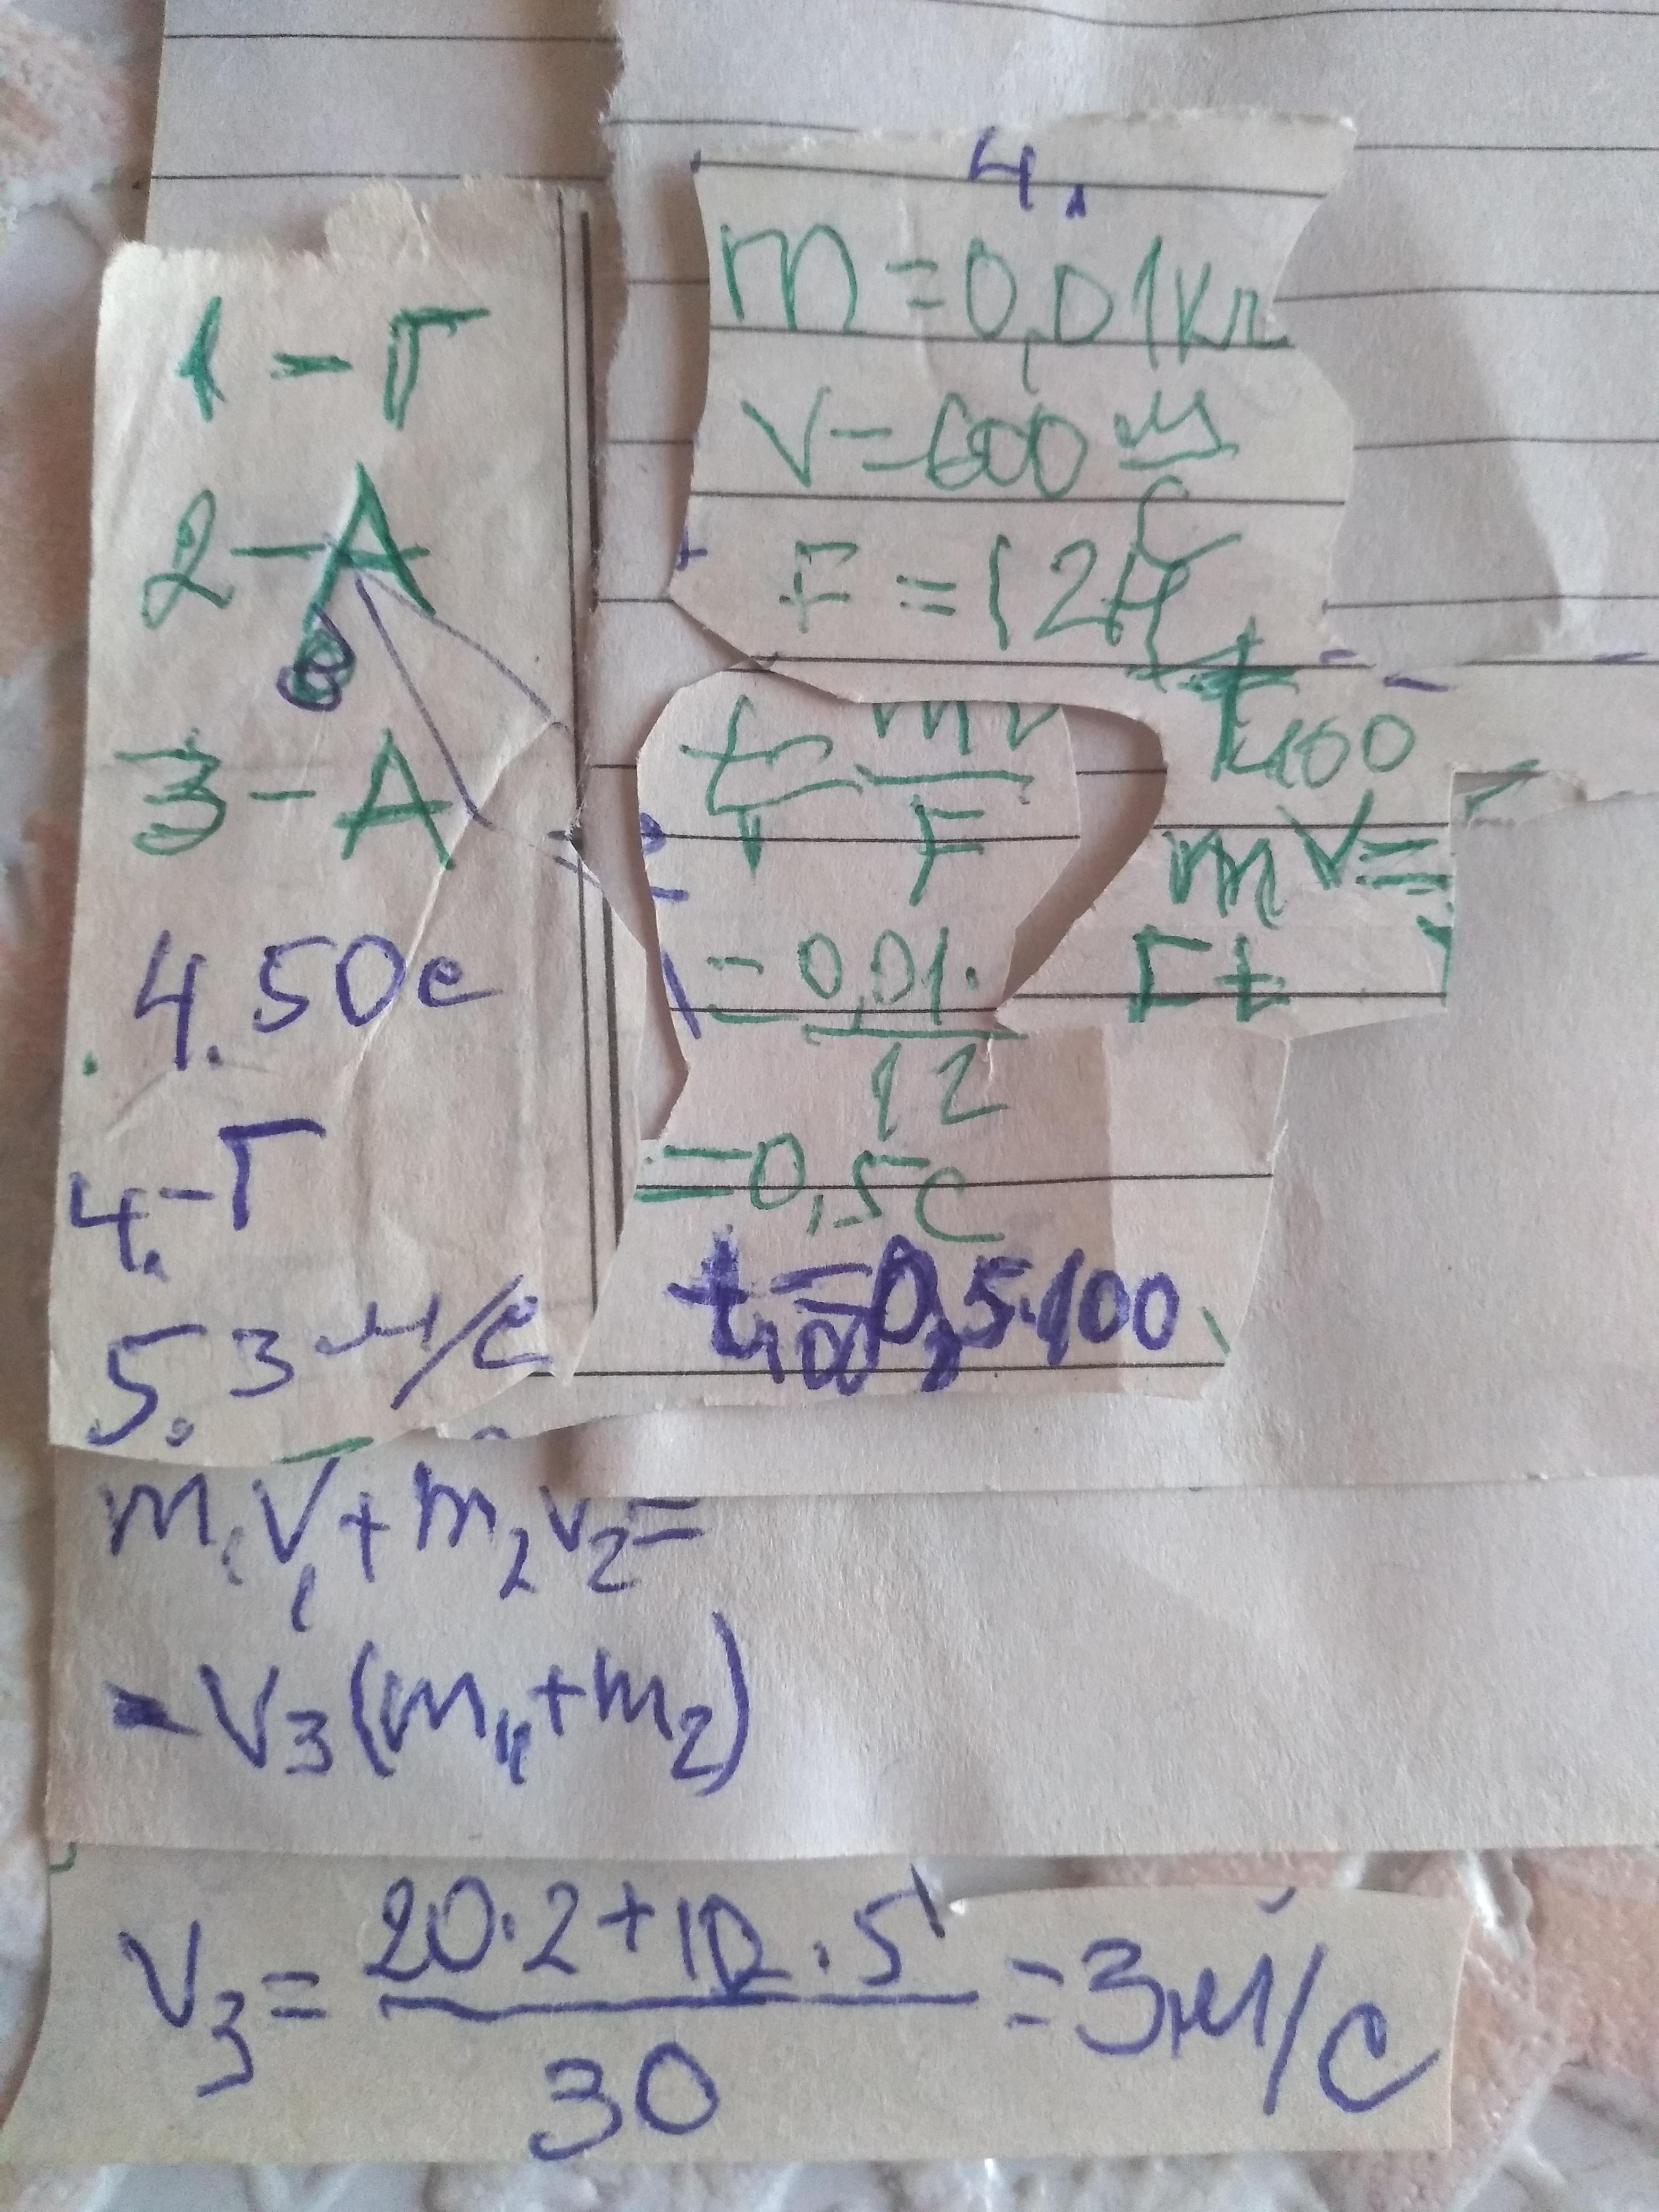 1 - Г
2 - А
3 - А
4. 50 с
4. - Г
5. 3 м/с
4.
m = 0,01 кг
V = 600 м/с
F = 12 Н
t₁₀₀
mV =
Ft
t₁ = mv/F
= 0,01·/12
= 0,5 с
t₁₀₀ = 0,5·100
m₁V₁ + m₂V₂ =
- V₃(m₁ + m₂)
V₃ = 20·2 + 10·5/30 = 3 м/с